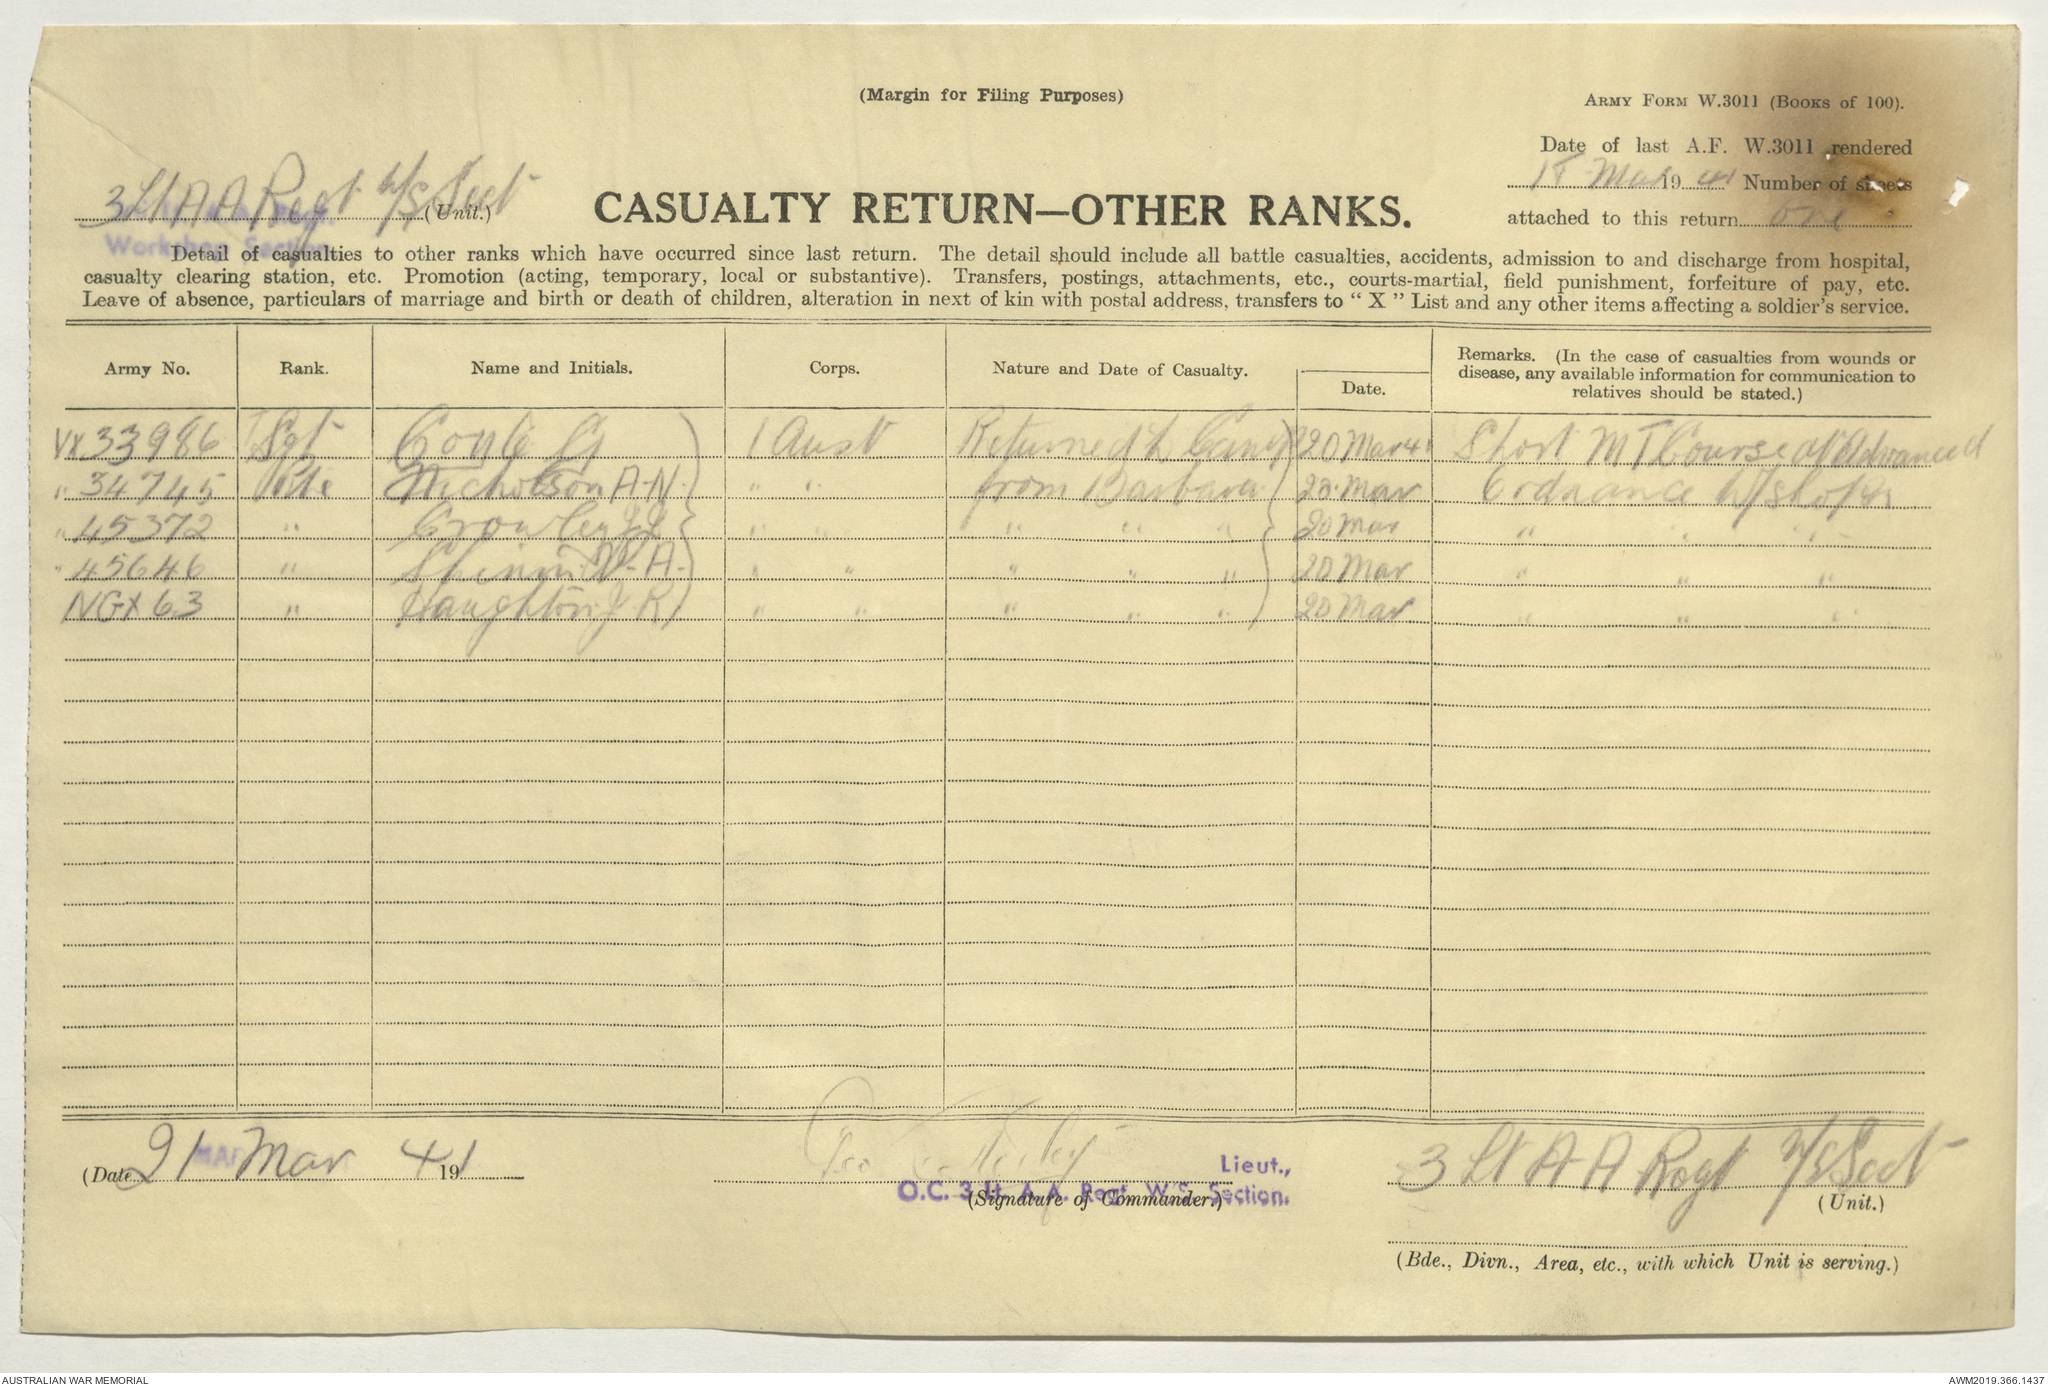 (Margin for Filing Purposes)
ARMY FORM W.3011 (BOOKS OF 100).
Date of last A.F. W.3011 rendered
18 Mar 1941 Number of sheets
attached to this return one
3 Lt A A Regt W/S Sect (Unit.)
Workshop Section
CASUALTY RETURN—OTHER RANKS.
Detail of casualties to other ranks which have occurred since last return. The detail should include all battle casualties, accidents, admission to and discharge from hospital,
casualty clearing station, etc. Promotion (acting, temporary, local or substantive). Transfers, postings, attachments, etc., courts-martial, field punishment, forfeiture of pay, etc.
Leave of absence, particulars of marriage and birth or death of children, alteration in next of kin with postal address, transfers to “ X ” List and any other items affecting a soldier's service.
Army No. Rank. Name and Initials. Corps. Nature and Date of Casualty. Date. Remarks. (In the case of casualties from wounds or
disease, any available information for communication to
relatives should be stated.)
VX33986 Sgt G 1 Aust Returned to Camp 20 Mar 41 Short M T Course at Advanced
" 34745 Pte Nicholson A.N. " " from Barbara 20 Mar Ordnance W/shops
" 45372 " Crowley " " " " " 20 Mar " " "
" 45646 " A. " " " " " 20 Mar " " "
NGX 63 " Haughton J. R " " " " " 20 Mar " " "
(Date 21 Mar 41 191
Lieut.,
O.C. 3 Lt. A.A. Regt. W.S. Section.
(Signature of Commander.)
3 Lt A A Regt W/S Sect
(Unit.)
(Bde., Divn., Area, etc., with which Unit is serving.)
AUSTRALIAN WAR MEMORIAL
AWM2019.366.1437